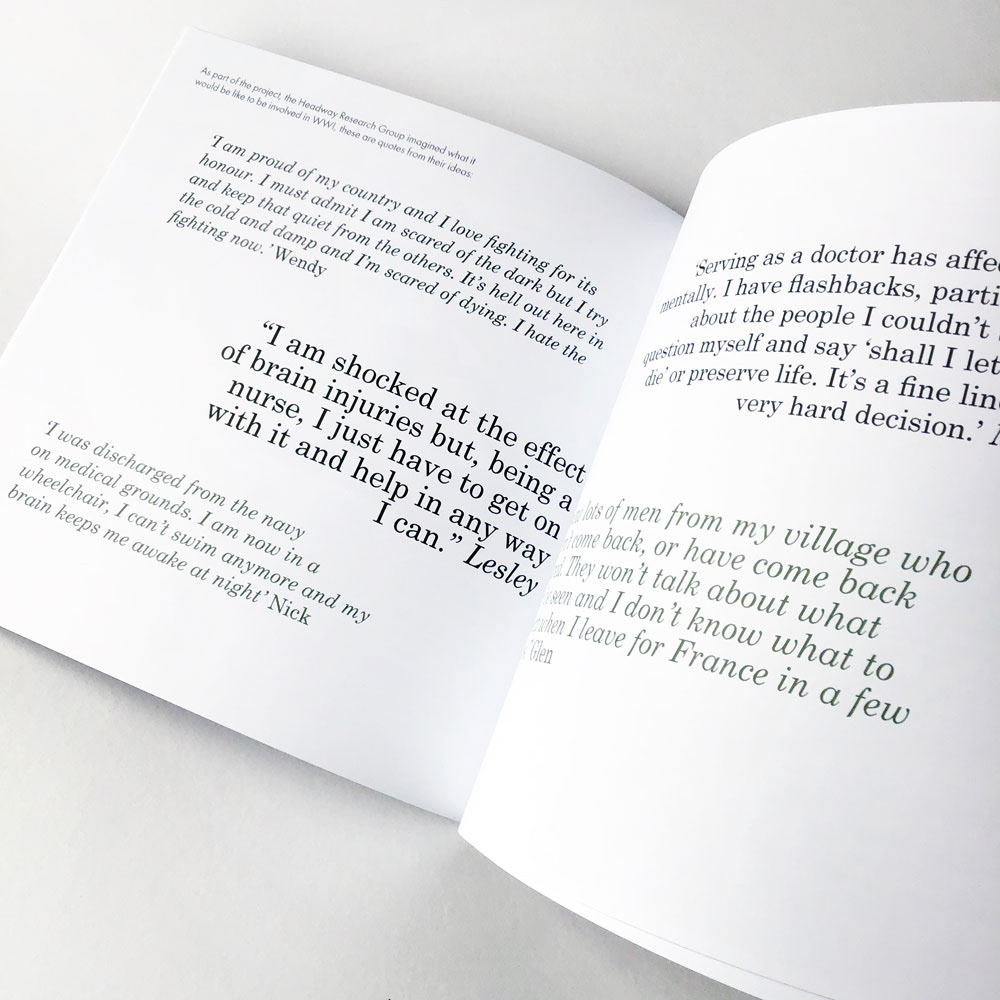 As part of the project, the Headway Research Group imagined what it
would be like to be involved in WWI, these are quotes from their ideas:
'I am proud of my country and I love fighting for its
honour. I must admit I am scared of the dark but I try
and keep that quiet from the others. It's hell out here in
the cold and damp and I'm scared of dying. I hate the
fighting now.' Wendy
"I am shocked at the effect
of brain injuries but, being a
nurse, I just have to get on
with it and help in any way
I can." Lesley
'I was discharged from the navy
on medical grounds. I am now in a
wheelchair, I can't swim anymore and my
brain keeps me awake at night' Nick
'Serving as a doctor has
mentally. I have flashbacks,
about the people I couldn't
question myself and say 'shall I let
die' or preserve life. It's a fine
very hard decision.'
lots of men from my village who
come back, or have come back
They won't talk about what
seen and I don't know what to
when I leave for France in a few
Glen